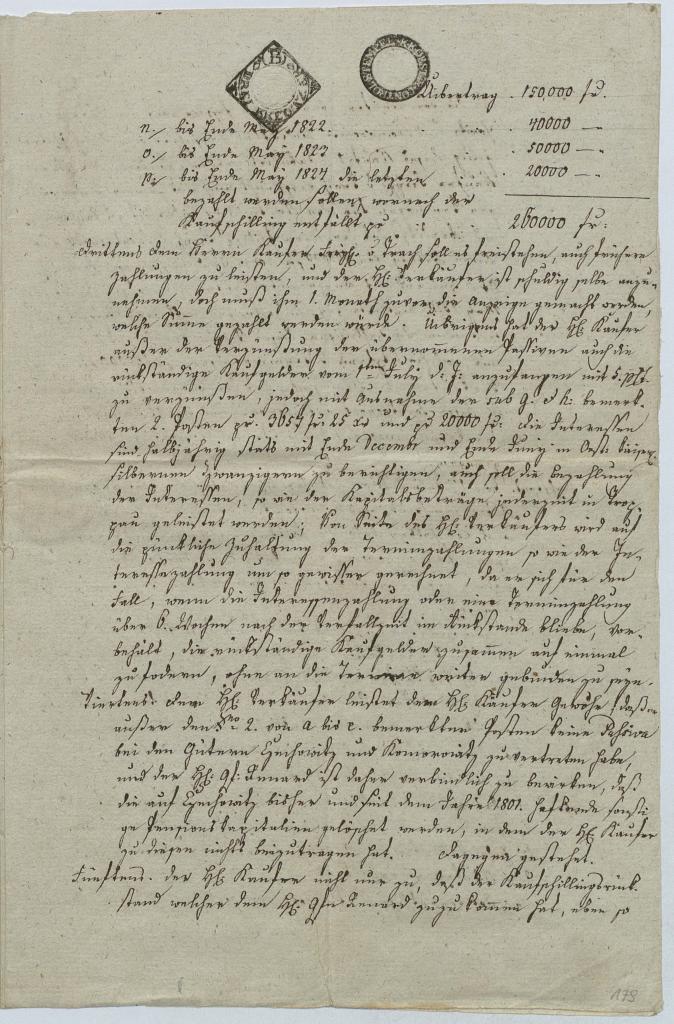 Uibertrag . 150,000 fr.
n./ bis Ende May 1822. . . . 40000 —
o./ bis Ende May 1823 . . . . 50000 —
p./ bis Ende May 1824 die letzten . 20000 —
bezahlt werden sollen, wornach der
Kaufschilling entfällt pr : 260000 fr:
Drittens dem Herrn Kaufer v Trach soll es freistehen, auch frühere
Zahlungen zu leisten, und der H: Verkäufer ist schuldig selbe anzu-
nehmen, doch muß ihm 1. Monath zuvor die Anzeige gemacht werden,
welche Summe gezahlt werden würde. Uibrigens hat der H: Kaufer
außer der Verzinßung der übernommenen Passiven auch die
rückständige Kaufgelder vom 1ten July d: J: anzufangen mit 5. pCt.
zu verzinßen, jedoch mit Ausnahme der sub g. et h: bemerk-
ten 2. Posten pr. 3657 fr 25 xr und pr 20000 fr: Die Interessen
sind halbjährig stäts mit Ende December und Ende Juny in Oest: kaiserl
silbernen Zwanzigern zu berichtigen, auch soll die Bezahlung
der Interessen, so wie der Kapitalsbeträge jederzeit in Trop-
pau geleistet werden; Von Seite des H: Verkäufers wird auf
die pünktliche Zuhaltung der Terminzahlungen so wie der In-
teressezahlung um so gewisser gerechnet, da er sich für den
Fall, wenn die Interessenzahlung oder eine Terminzahlung
über 6. Wochen nach der Verfallzeit im Rückstande bliebe, vor-
behält, die rückständige Kaufgelder zusammen auf einmal
zu fodern, ohne an die Termine weiter gebunden zu seyn.
Viertens. Der H: Verkäufer leistet dem H: Käufer Gewähr, daß er
außer den No 2. von a bis c. bemerkten Posten keine Passiva
bei den Gütern und zu vertreten habe,
und der H: Gf: Renard ist daher verbindlich zu bewirken, daß
die auf bisher und seit dem Jahre 1801. haftende sonsti-
ge Pensionskapitalien gelöschet werden, in dem der H: Kaufer
zu diesen nichts beizutragen hat. Dagegen gestehet.
Fünftens. der H: Kaufer nicht nur zu, daß der Kaufschillingsrück-
stand welcher dem H: Gfn Renard zuzukommen hat, eben so
178